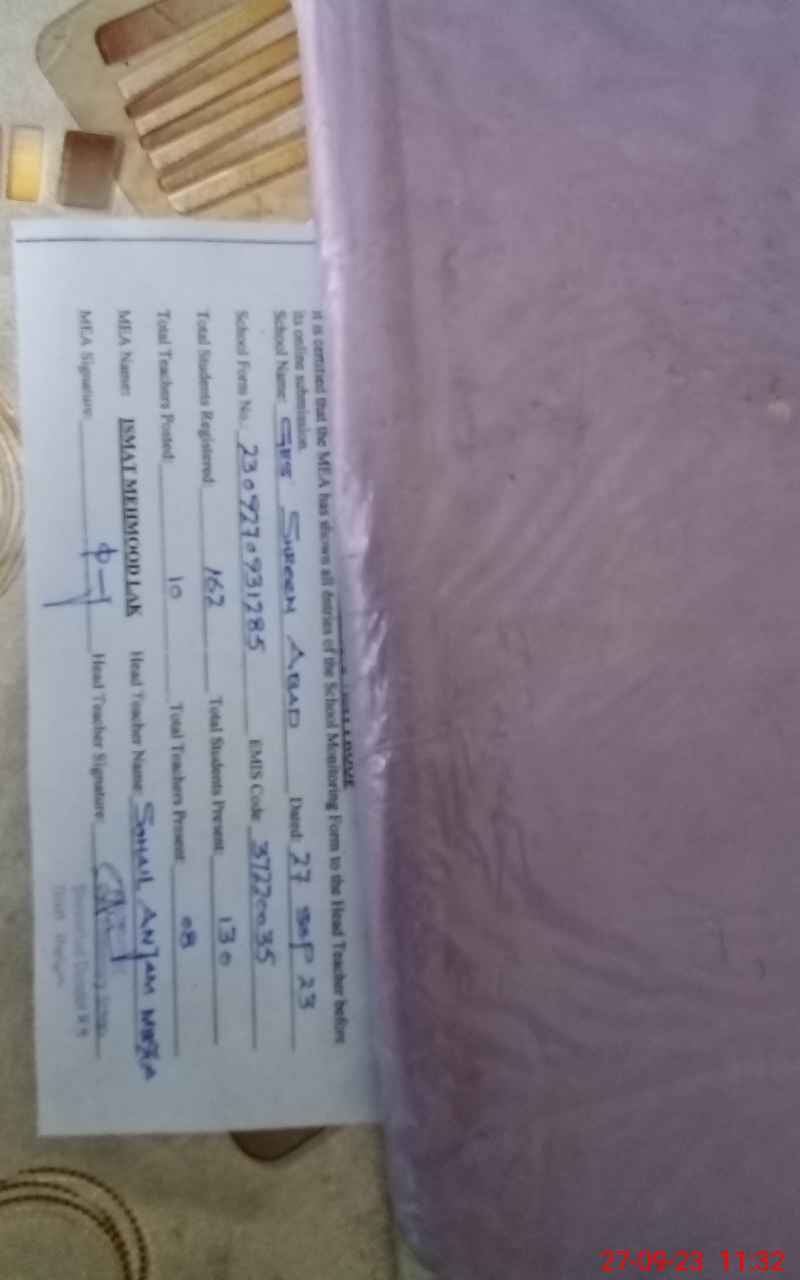 It is certified that the MEA has shown all entries of the School Monitoring Form to the Head Teacher before
its online submission.
School Name: GES SHREEN ABAD Dated: 27 SEP 23
School Form No. 2309270931285 EMIS Code 37220035
Total Students Registered 162 Total Students Present 130
Total Teachers Posted: 10 Total Teachers Present 08
MEA Name: ISMAT MEHMOOD LAK Head Teacher Name: SOHAIL ANJAM MIRZA
MEA Signature: Head Teacher Signature
27-09-23 11:32